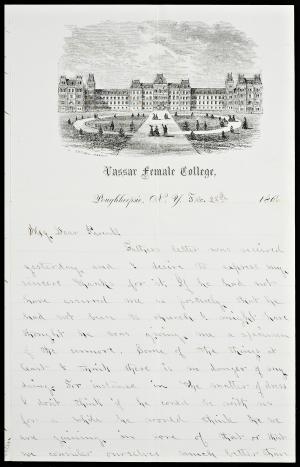 Vassar Female College,
Poughkeepsie, N. Y. Feb. 28th 186
My Dear
Father's letter was received
yesterday and I desire to express my
sincere thanks for it. If he had not
have assured me so positively that he
had not been to I might have
thought he was giving me a specimen
of the sermons. Some of the things at
least I think there is no danger of my
doing. For instance in the matter of dress
I don't think if he could be with us
for a while he would think the we
are gaining in love of that or that
we consider ourselves much better than